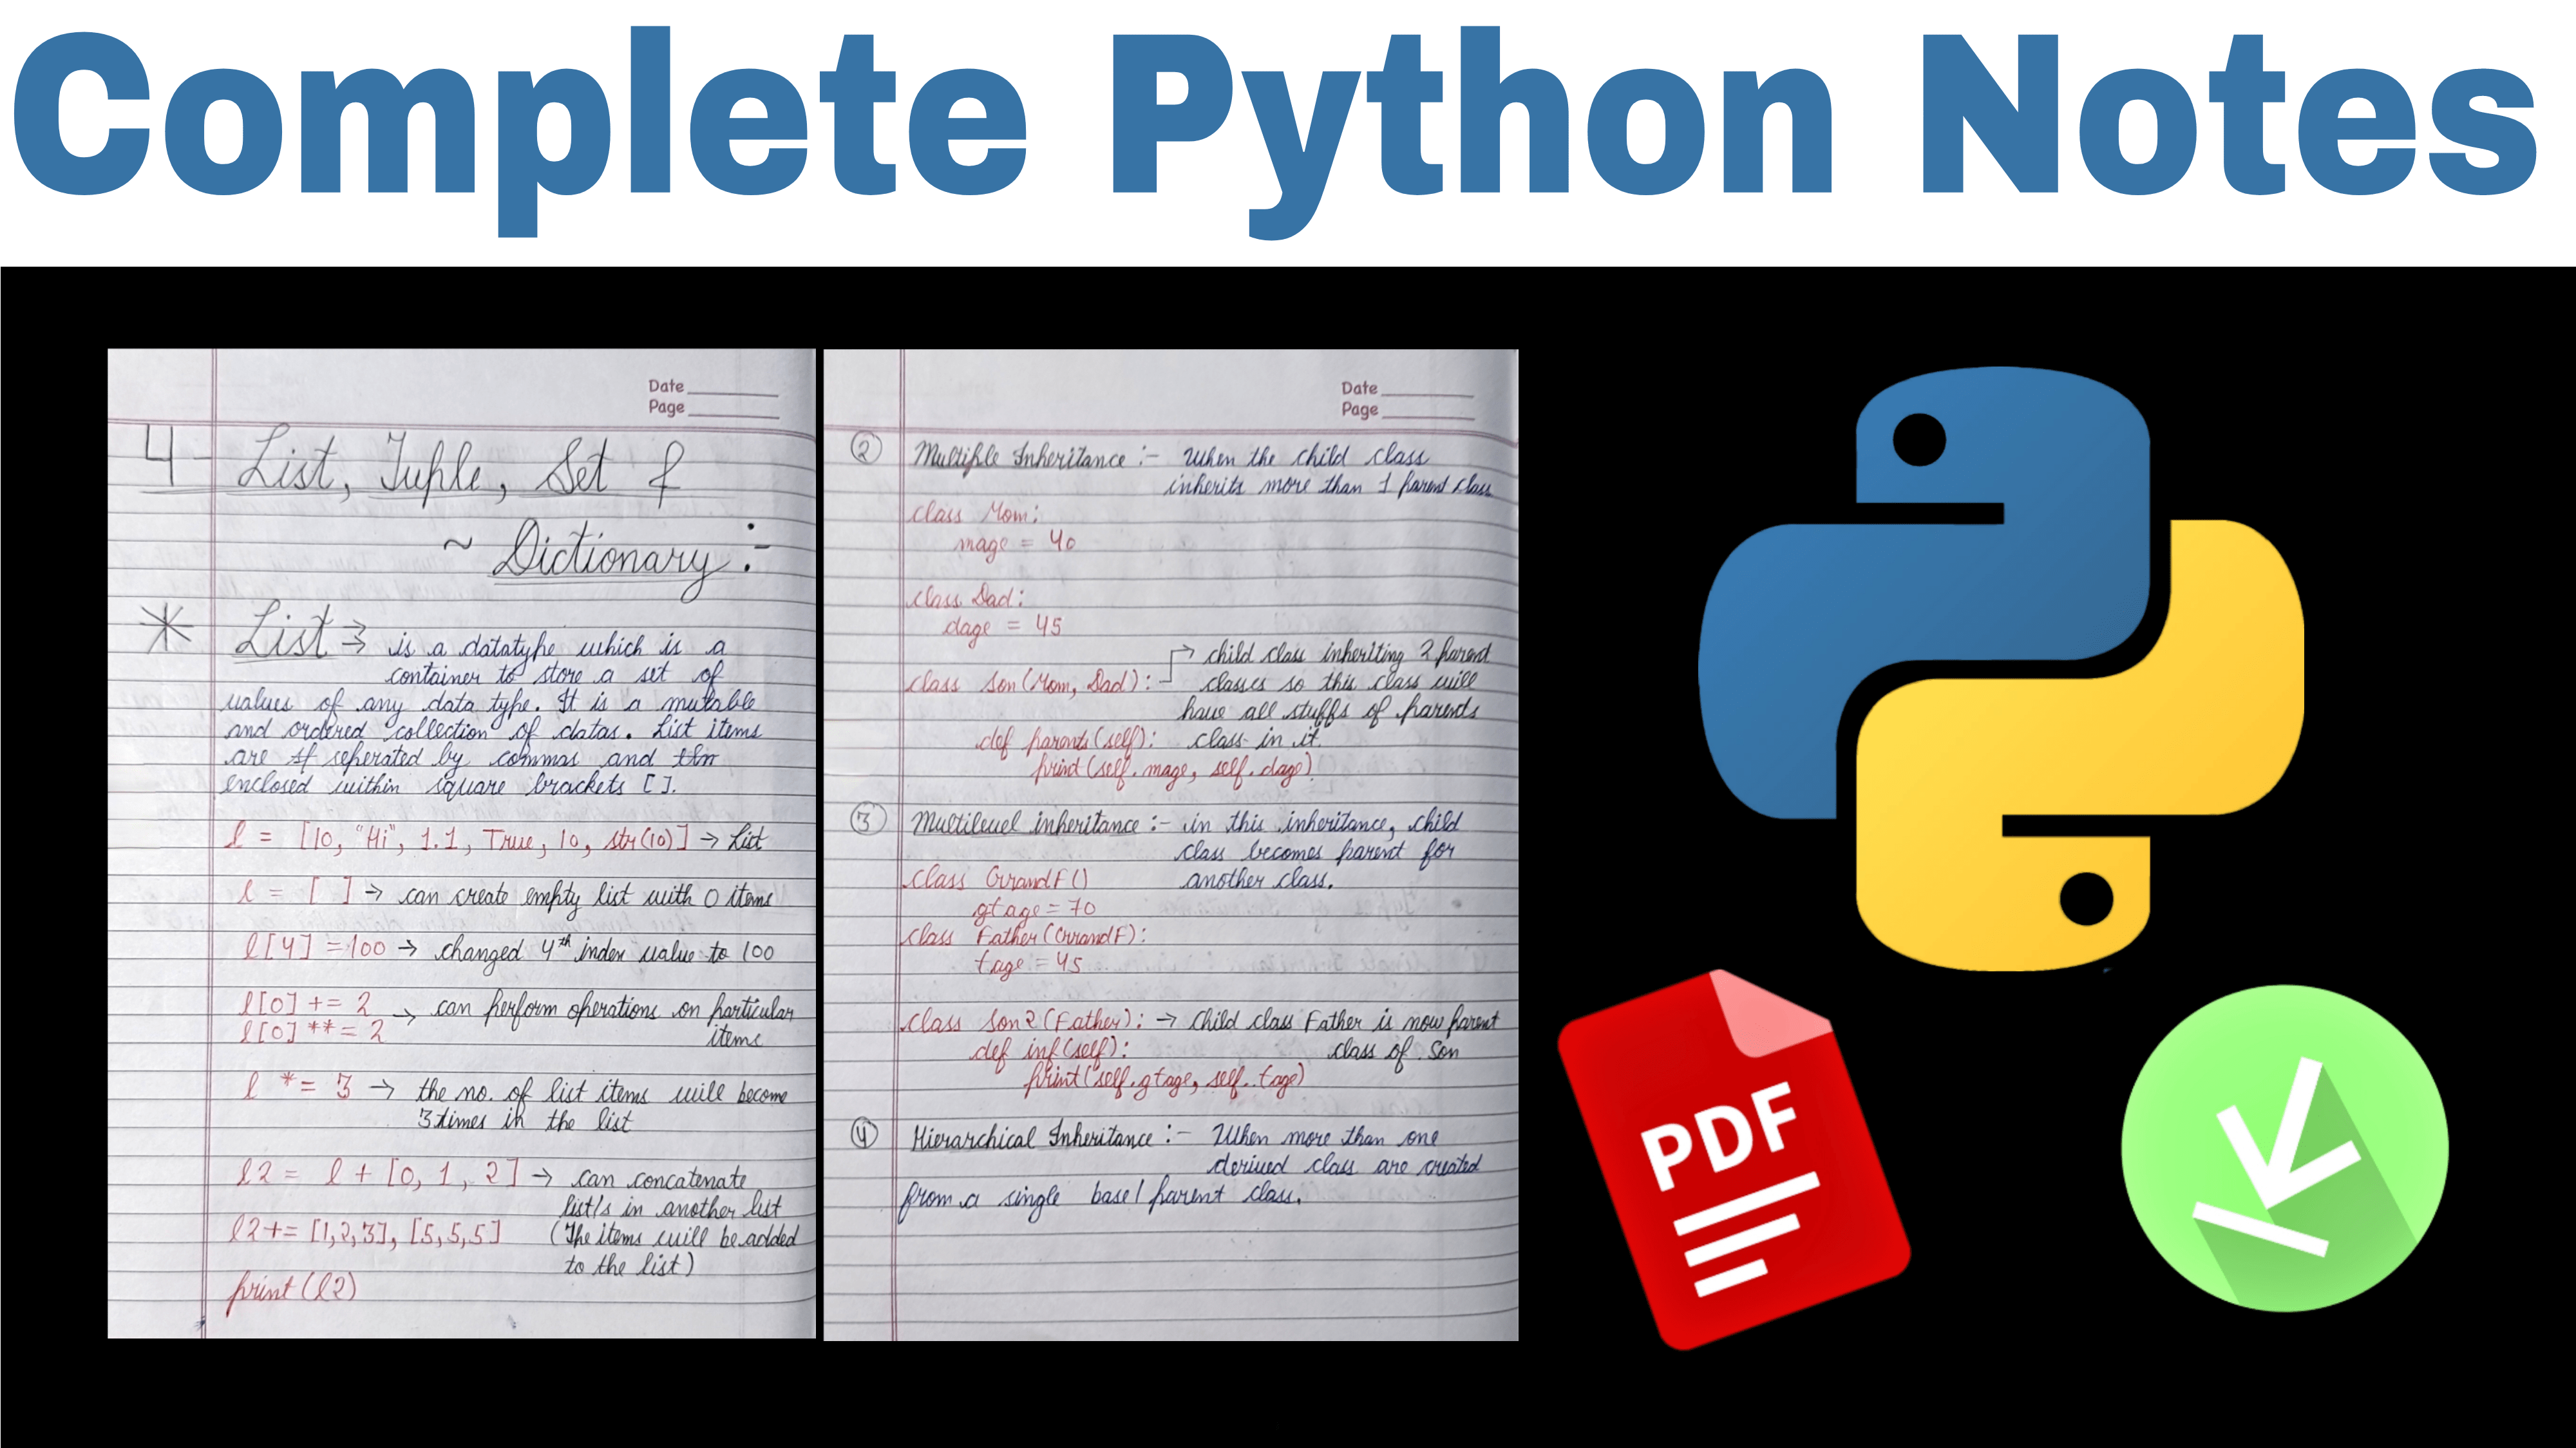 Complete Python Notes
Date
Page
4- List, Tuple, Set &
~ Dictionary :-
* List → is a datatype which is a
container to store a set of
values of any data type. It is a mutable
and ordered collection of datas. List items
are seperated by commas and
enclosed within square brackets [ ].
l = [10, "Hi", 1.1, True, 10, str(10)] → List
l = [ ] → can create empty list with 0 items
l[4] = 100 → changed 4th index value to 100
l[0] += 2 → can perform operations on particular
l[0] **= 2 items
l *= 3 → the no. of list items will become
3 times in the list
l2 = l + [0, 1, 2] → can concatenate
list/s in another list
l2+= [1,2,3], [5,5,5] (The items will be added
to the list)
print(l2)
Date
Page
② Multiple Inheritance :- When the child class
inherits more than 1 parent class
class Mom:
mage = 40
class Dad:
dage = 45
→ child class inheriting 2 parent
class Son(Mom, Dad): classes so this class will
have all stuffs of parents
def parents(self): class in it.
print(self.mage, self.dage)
③ Multilevel inheritance :- in this inheritance, child
class becomes parent for
class GrandF() another class.
gfage = 70
class Father(GrandF):
fage = 45
class Son2(Father): → Child class Father is now parent
def inf(self): class of Son
print(self.gfage, self.fage)
④ Hierarchical Inheritance :- When more than one
derived class are created
from a single base/parent class.
PDF